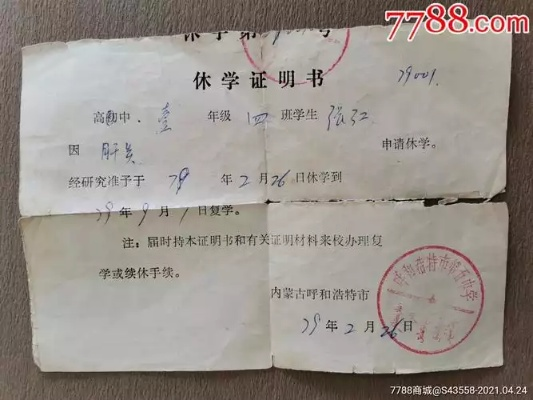 7788.com
休学第 号
休学证明书
79001
高 中. 壹 年级 四 班学生 张红
因 肝炎 申请休学。
经研究准予于 79 年 2 月 26 日休学到
79 年 9 月 1 日复学。
注:届时持本证明书和有关证明材料来校办理复
学或续休手续。
内蒙古呼和浩特市
呼和浩特市第五中学
79 年 2 月 26 日
7788商城@S43558-2021.04.24